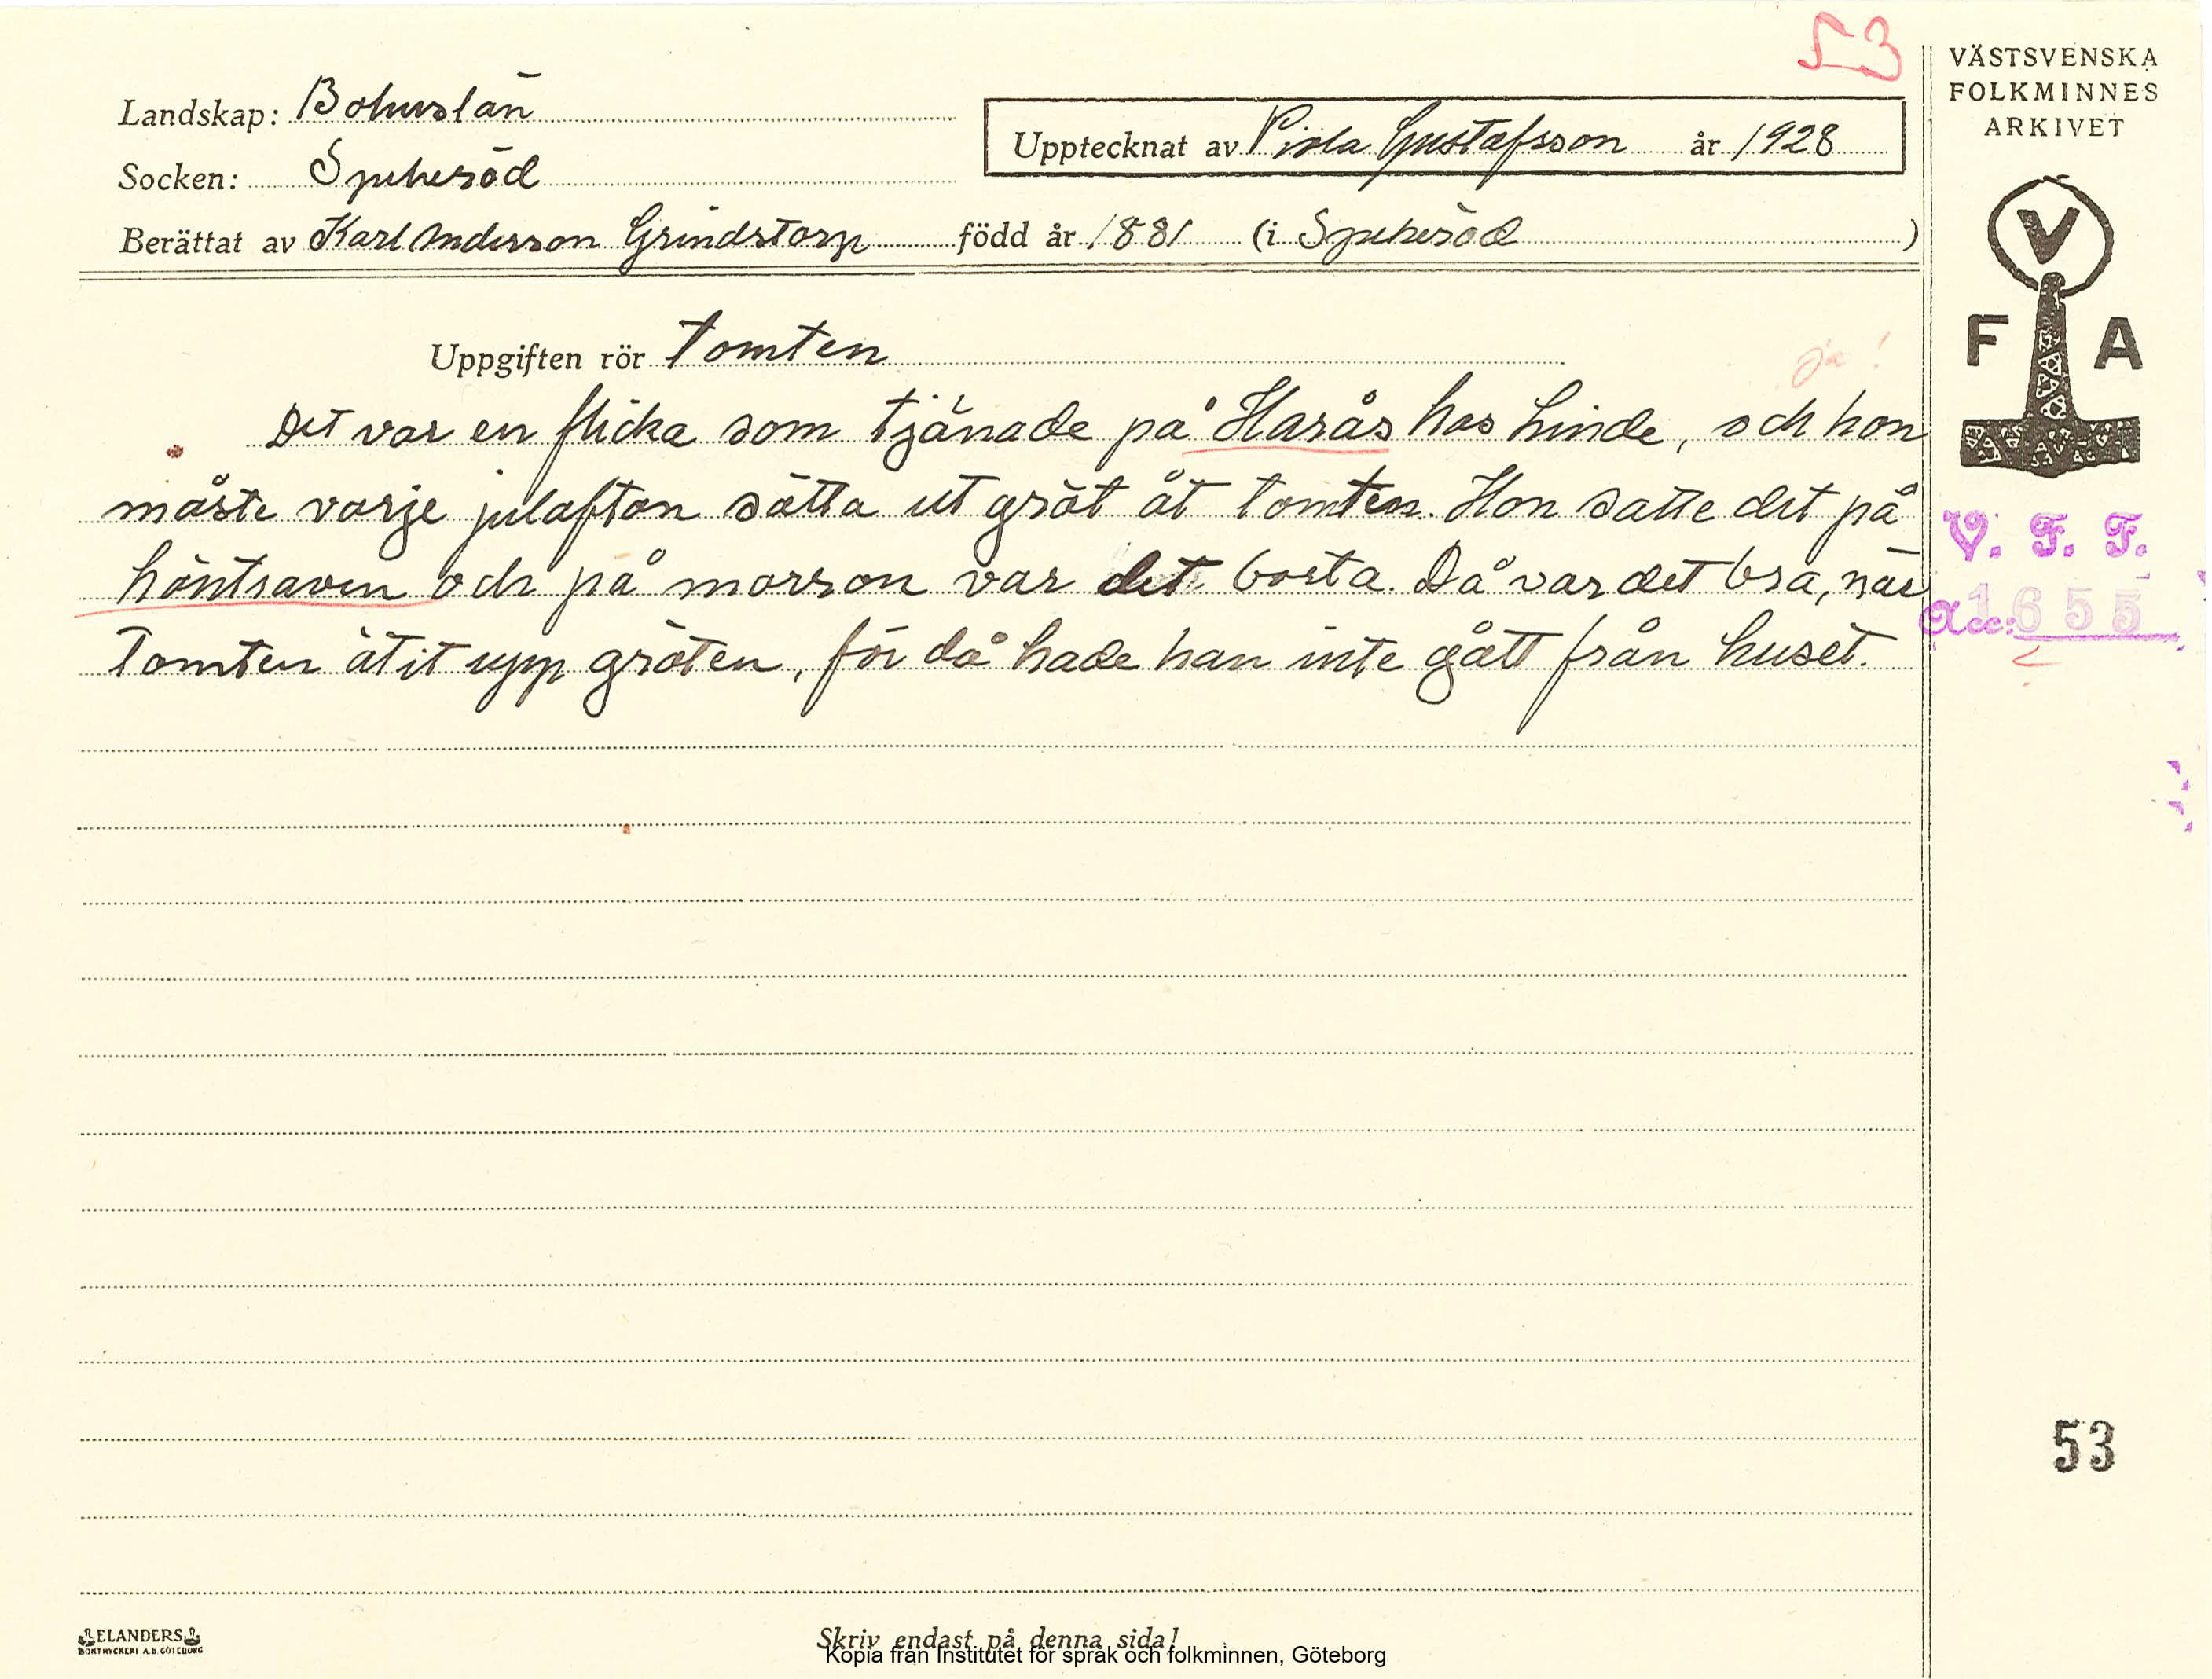 53
VÄSTSVENSKA
FOLKMINNES
ARKIVET
Landskap: Bohuslän
Upptecknat av Viola Gustafsson år 1928
Socken: Spekeröd
Berättat av Karl Andersson Grindstorp född år 1881 (i Spekeröd )
V
F A
Uppgiften rör Tomten
ja!
Det var en flicka som tjänade på Harås hos Linde, och hon
måste varje julafton sätta ut gröt åt tomten. Hon satte det på
höntraven och på morron var det borta. Då var det bra, när
Tomten ätit upp gröten, för då hade han inte gått från huset.
V. F. F.
Acc: 1655
53
ELANDERS
BOKTRYCKERI A.B. GÖTEBORG
Skriv endast på denna sida!
Kopia från Institutet för språk och folkminnen, Göteborg